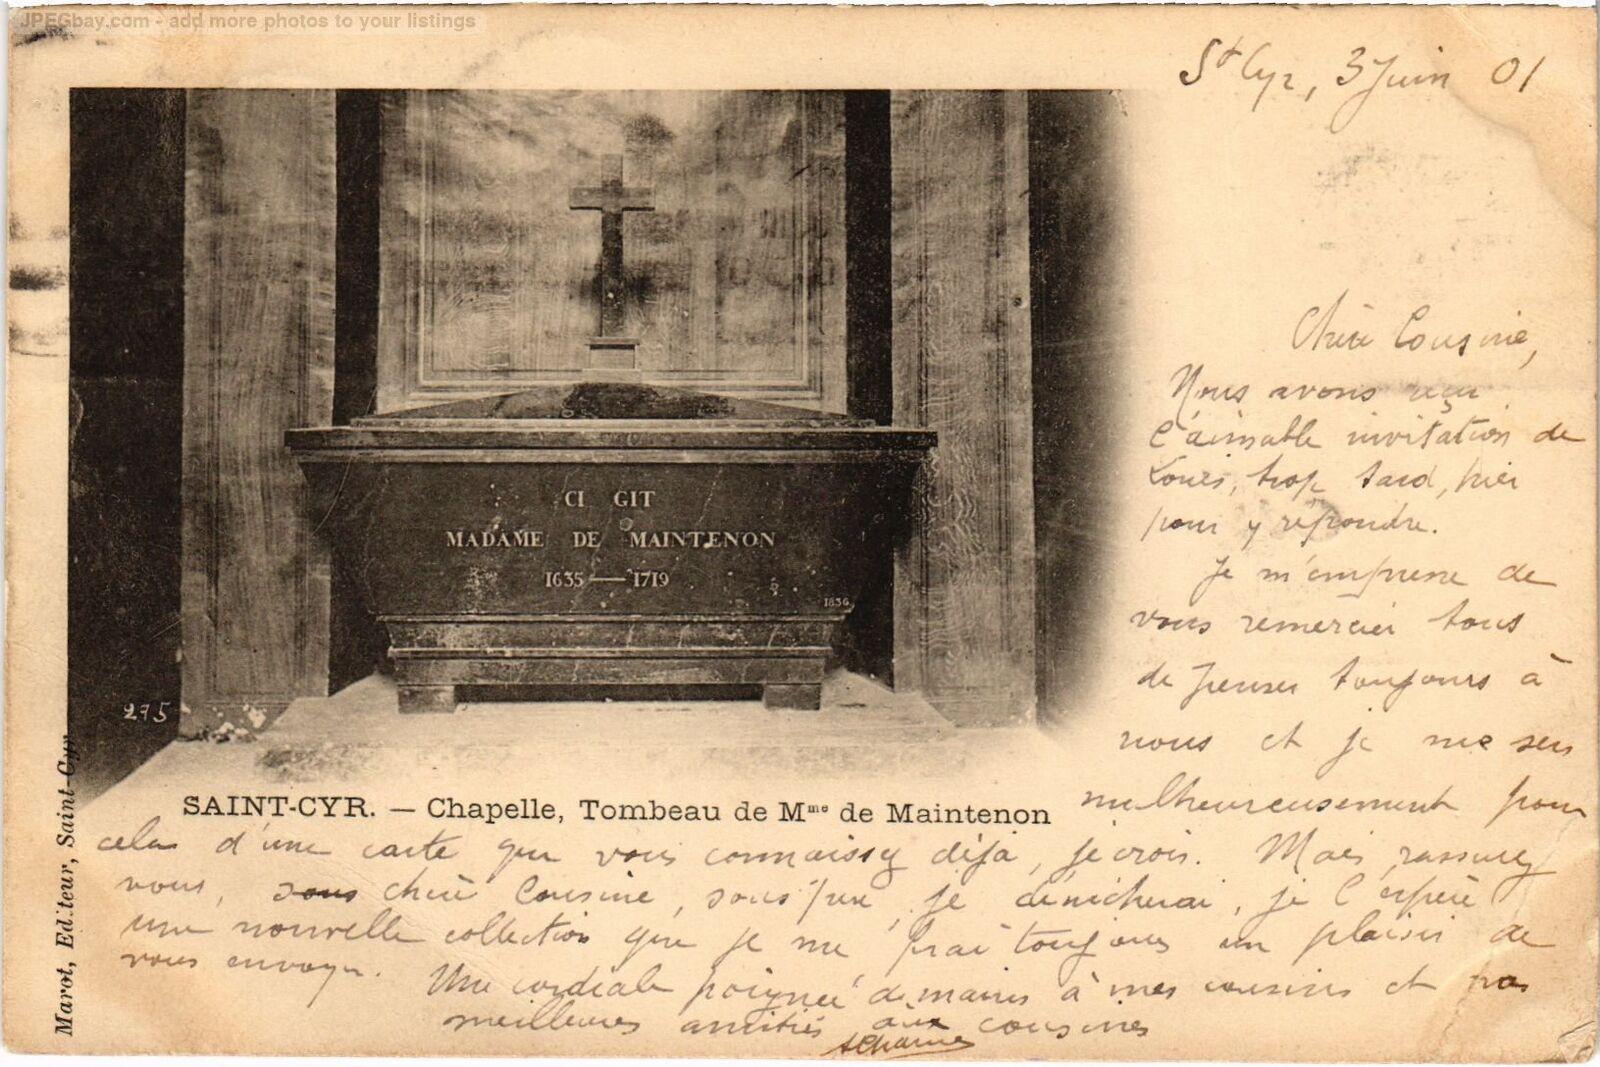 JPEGbay.com - add more photos to your listings
St Cyr, 3 Juin 01
CI GIT
MADAME DE MAINTENON
1635 — 1719
1836
275
SAINT-CYR. — Chapelle, Tombeau de Mme de Maintenon
Marot, Editeur, Saint-Cyr
Chère Cousine,
Nous avons reçu
l'aimable invitation de
Louis, trop tard, hier
pour y répondre.
Je m'empresse de
vous remercier tous
de penser toujours à
nous et je me sers
malheureusement pour
cela d'une carte que vous connaissez déjà, je crois. Mais, rassurez
vous, sous chère Cousine, sous peu, je dénicherai, je l'espère
une nouvelle collection que je me frai toujours un plaisir de
vous envoyer.
Une cordiale poignée de mains à mes cousins et nos
meilleures amitiés aux cousines